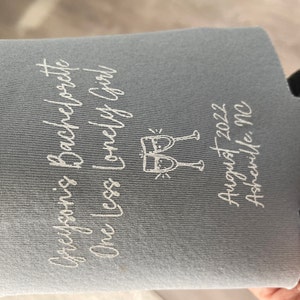 Greyson's Bachelorette
One Less Lonely Girl
August 2022
Asheville, NC